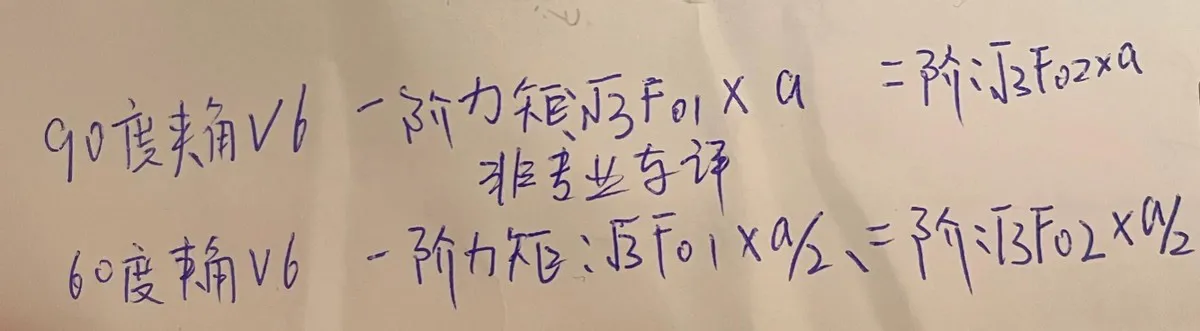 90度夹角V6 一阶力矩:√3F01×a 二阶:√3F02×a
非专业车评
60度夹角V6 一阶力矩:√3F01×a/2、二阶:√3F02×a/2